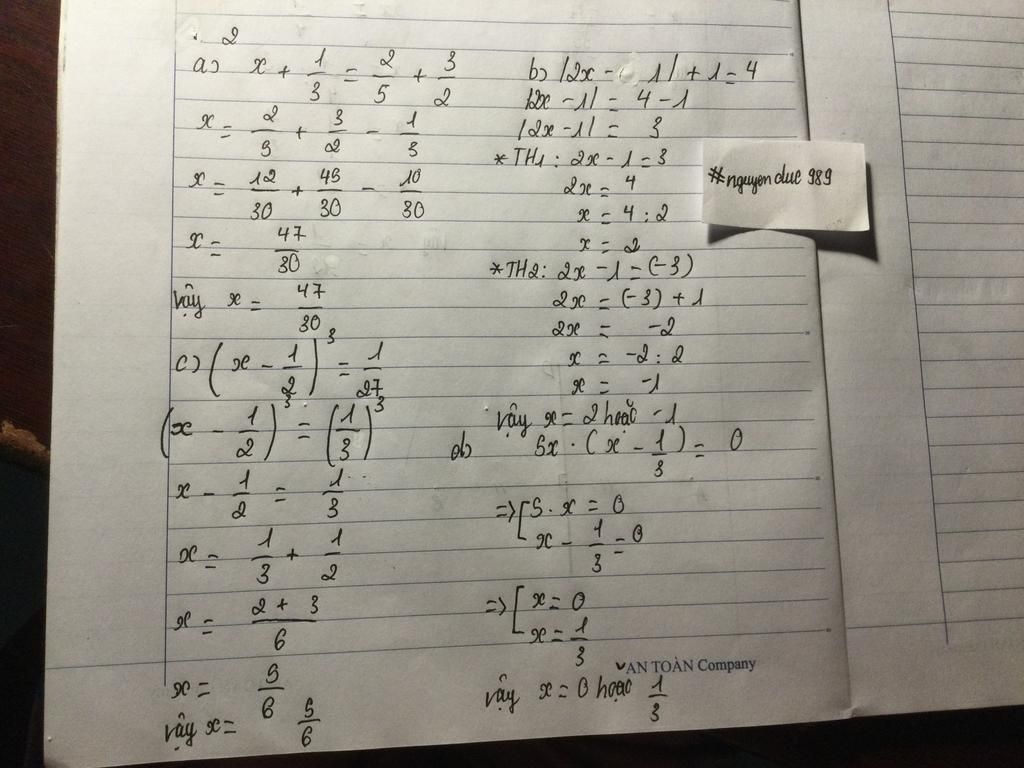 2
a) x + 1/3 = 2/5 + 3/2
x = 2/5 + 3/2 - 1/3
x = 12/30 + 45/30 - 10/30
x = 47/30
vậy x = 47/30
c) (x - 1/2)^3 = 1/27
(x - 1/2)^3 = (1/3)^3
x - 1/2 = 1/3
x = 1/3 + 1/2
x = (2 + 3)/6
x = 5/6
vậy x = 5/6
b) |2x - 1| + 1 = 4
|2x - 1| = 4 - 1
|2x - 1| = 3
* TH1: 2x - 1 = 3
2x = 4
x = 4 : 2
x = 2
* TH2: 2x - 1 = (-3)
2x = (-3) + 1
2x = -2
x = -2 : 2
x = -1
vậy x = 2 hoặc -1
d) 5x · (x - 1/3) = 0
=> [ 5 · x = 0
x - 1/3 = 0
=> [ x = 0
x = 1/3
vậy x = 0 hoặc 1/3
#nguyenduc989
AN TOÀN Company